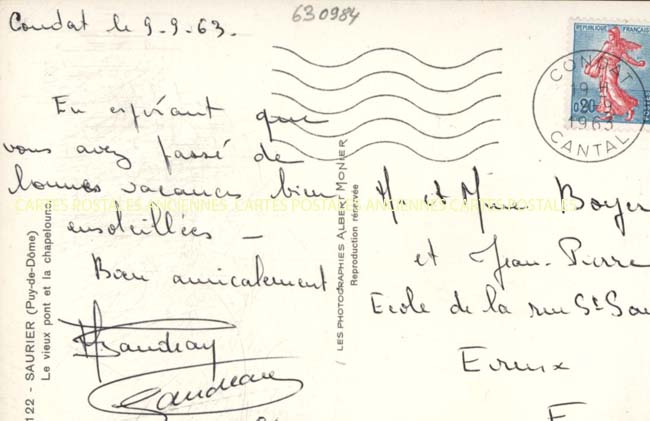 Condat le 9-9-63.
630984
En espérant que
vous avez passé de
bonnes vacances bien
ensoleillées -
Bien amicalement
REPUBLIQUE FRANÇAISE
CONDAT
19 H
9-9
1963
CANTAL
M et Mme Boyer
et Jean-Pierre
Ecole de la rue St Sau
Evreux
E
CARTES POSTALES ANCIENNES CARTES POSTALES ANCIENNES CARTES POSTALES
LES PHOTOGRAPHIES ALBERT MONIER
Reproduction réservée
122 - SAURIER (Puy-de-Dôme)
Le vieux pont et la chapelound.